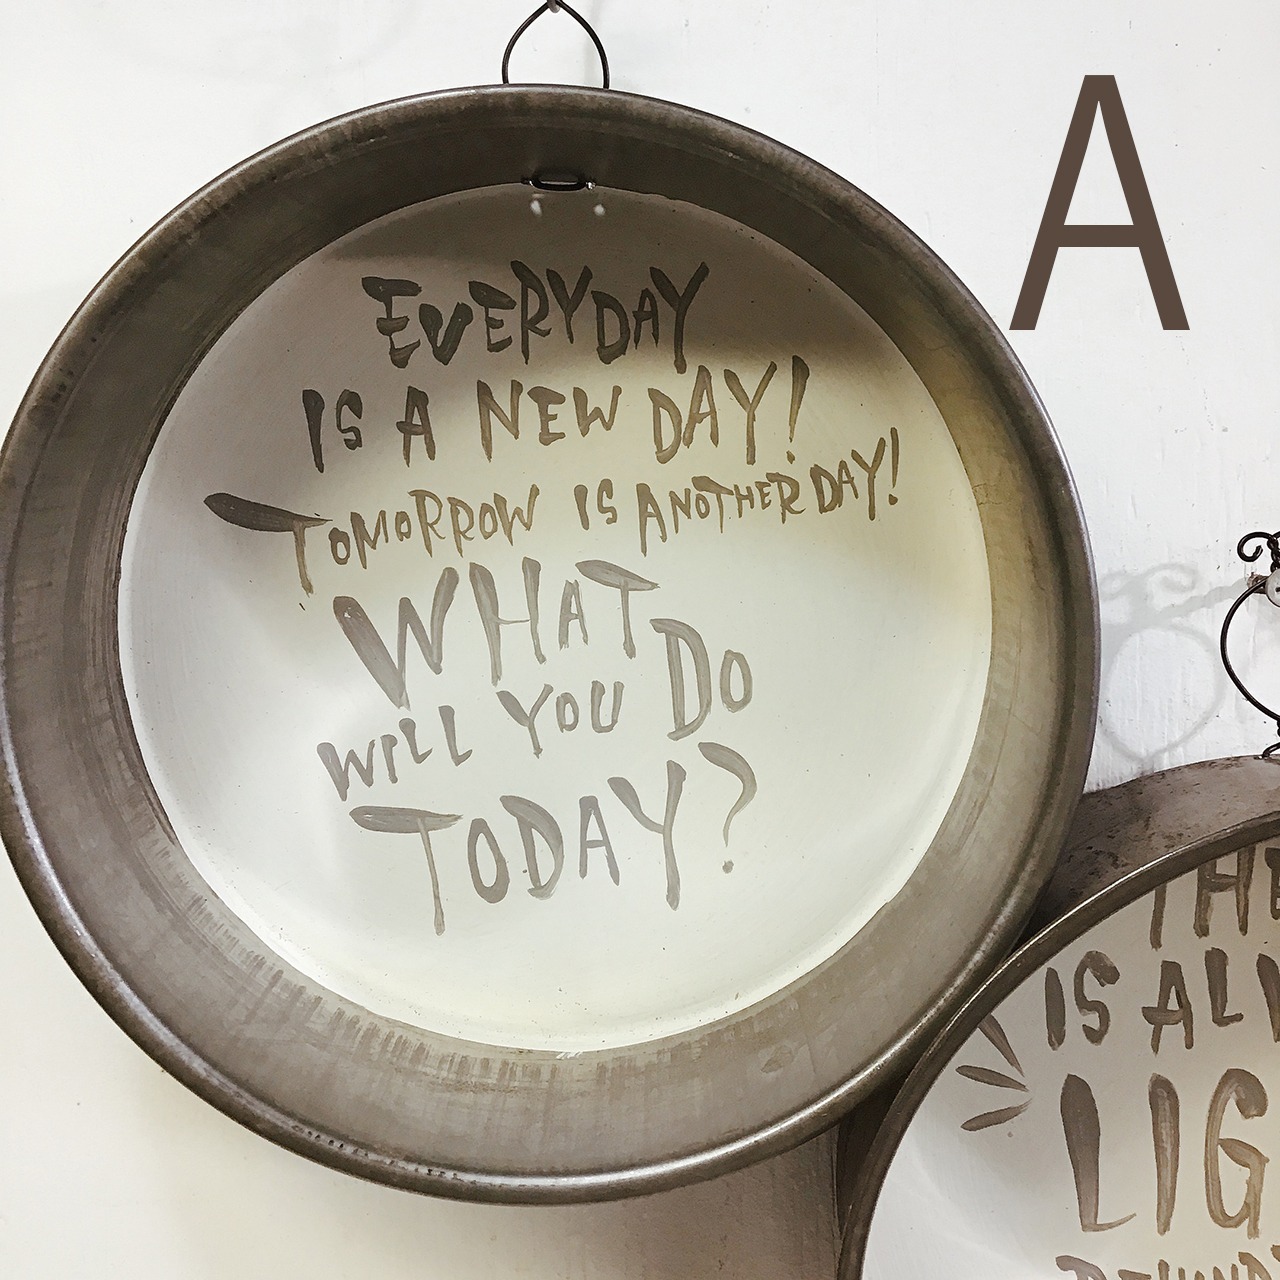 A
EVERYDAY
IS A NEW DAY!
TOMORROW IS ANOTHER DAY!
WHAT DO
WILL YOU
TODAY?
IS